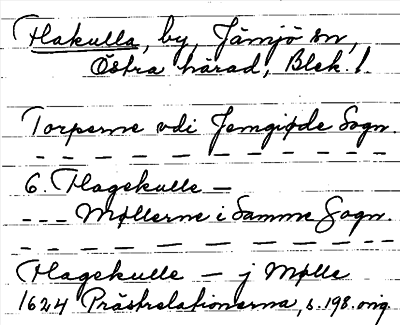 Hakulla, by, Jämjö sn,
Östra härad, Blek. l.
Torperne udi Jemgiøde Sogn.
— — — — — — — — — —
6. Hagekulle —
- - - Møllerne i Samme Sogn
— — — — — — — — — —
Hagekulle — j Mølle
1624 Prästrelationerna, s. 198. orig.